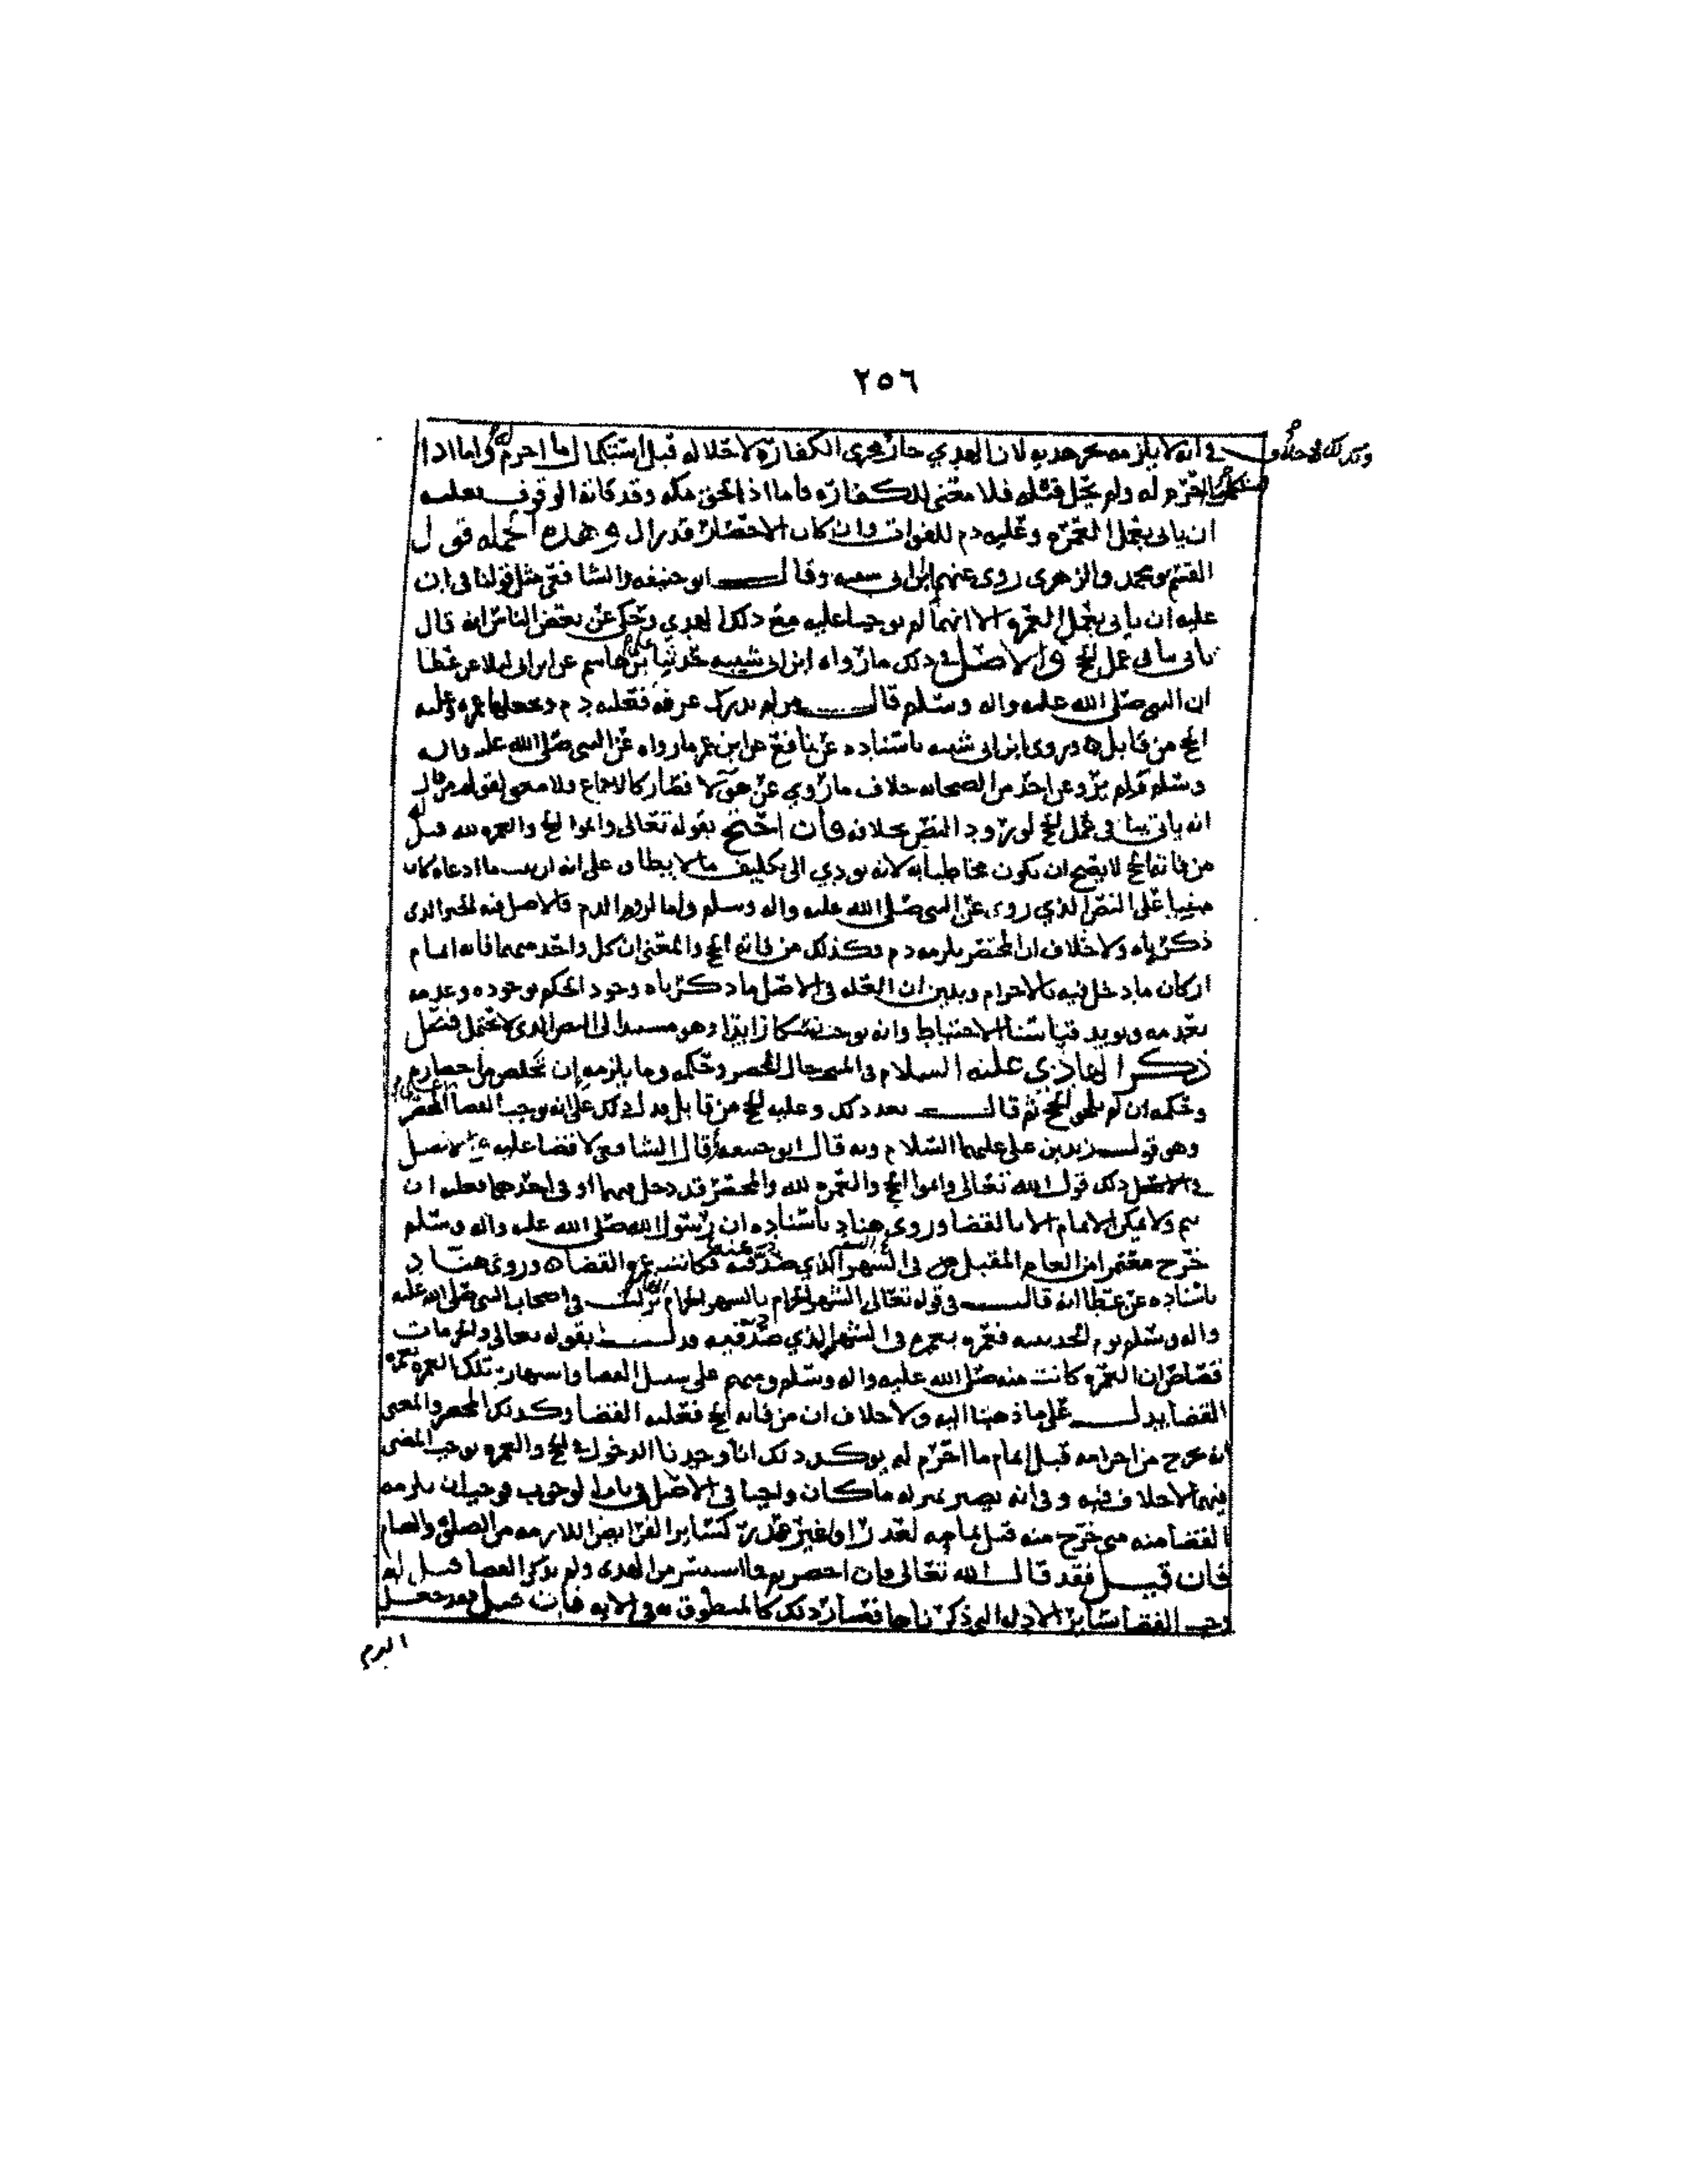 ٢٥٦
وكذلك لا خلاف
في انه لا يلزمه نحر هديه لان الهدي جار مجرى الكفارة لاحلاله قبل استكمال ما احرم له واما اذا
استكمل ما احرم له ولم يحل قبله فلا معنى للكفارة فاما اذا لحق مكه وقد فاته الوقوف فعليه
ان ياتي بعمل العمره وعليه دم للفوات وان كان الاحصار قد زال وهذه الجمله قول
القسم بن محمد والزهري روى عنهم ابن ابي شيبه وقال ابو حنيفه والشافعي مثل قولنا في ان
عليه ان ياتي بعمل العمره الا انهما لم يوجبا عليه مع ذلك الهدي وحكي عن بعض الناس انه قال
ياتي بباقي عمل الحج والاصل في ذلك ما رواه ابن ابي شيبه حدثنا علي بن هاشم عن ابن ابي ليلا عن عطا
ان النبي صلى الله عليه واله وسلم قال من لم يدرك عرفه فعليه دم ويجعلها عمره وعليه
الحج من قابل وروى ابن ابي شيبه باسناده عن نافع عن ابن عمر ما رواه عن النبي صلى الله عليه واله
وسلم ولم يرو عن احد من الصحابه خلاف ما روي عن هؤلا فصار كالاجماع ولا معنى لقول من قال
انه ياتي بباقي عمل الحج لورود النص بخلافه فان احتج بقوله تعالى واتموا الحج والعمره لله قيل له
من فاته الحج لا يصح ان يكون مخاطبا به لانه يودي الى تكليف ما لا يطاق على انه ان ثبت ما ادعاه كان
مبنيا على النص الذي روي عن النبي صلى الله عليه واله وسلم واما لزوم الدم فالاصل فيه الخبر الذي
ذكرناه ولا خلاف ان المحصر يلزمه دم فكذلك من فاته الحج والمعنى ان كل واحد منهما فاته اتمام
اركان ما دخل فيه بالاحرام ويبين ان العله في الاصل ما ذكرناه وجود الحكم بوجوده وعدمه
بعدمه ويويد قياسنا الاحتياط وانه يوجب نسكا زايدا وهو مستند الى النص الذي لا يحتمل فصل
ذكر الهادي عليه السلام في المنتخب حال المحصر وحكمه وما يلزمه ان تخلص من احصاره
وحكمه ان لم يلحق الحج ثم قال بعد ذلك وعليه الحج من قابل فدل ذلك على انه يوجب القضا على المحصر
وهو قول زيد بن علي عليهما السلام وبه قال ابو حنيفه وقال الشافعي لا قضا عليه
والاصل في ذلك قول الله تعالى واتموا الحج والعمره لله والمحصر قد دخل فيهما او في احدهما فعليه ان
يتم ولا يمكن الاتمام الا بالقضا وروى هناد باسناده ان رسول الله صلى الله عليه واله وسلم
خرج معتمرا من العام المقبل في الشهر الذي صد فيه فكانت عمره القضا وروى هناد
باسناده عن عطا انه قال في قوله تعالى الشهر الحرام بالشهر الحرام نزلت في اصحاب النبي صلى الله عليه
واله وسلم يوم الحديبيه فعمره بعمره في الشهر الذي صد فيه ودل بقوله تعالى والحرمات
قصاص ان العمره كانت منه صلى الله عليه واله وسلم ومنهم على سبيل القضا واشتهار تلك العمره بعمره
القضا يدل على ما ذهبنا اليه ولا خلاف ان من فاته الحج فعليه القضا وكذلك المحصر والمعنى
انه خرج من احرامه قبل اتمام ما احرم له يوكد ذلك انا وجدنا الدخول في الحج والعمره يوجب المضي
فيهما لا خلاف فيه وفي انه يصير بمنزله ما كان واجبا في الاصل في باب الوجوب فوجب ان يلزمه
القضا منه متى خرج منه قبل اتمامه لعذر او لغير عذر كساير الفرايض اللازمه من الصلوه والصيام
فان قيل فقد قال الله تعالى فان احصرتم فما استيسر من الهدي ولم يذكر القضا قيل له
وجب القضا بساير الادله التي ذكرناها فصار ذلك كالمنطوق به في الايه فان قيل فقد جعل
الدم